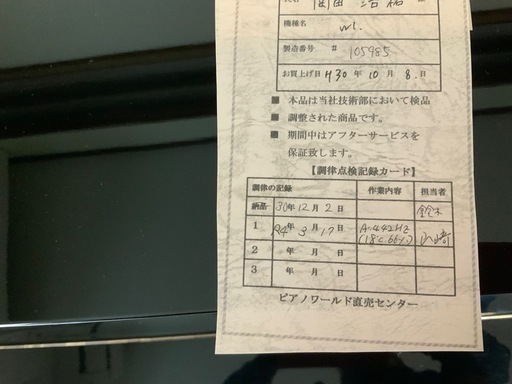 機種名 W1.
製造番号 # 105985
お買上げ日 H30年10月8.日
■ 本品は当社技術部において検品
■ 調整された商品です。
■ 期間中はアフターサービスを
保証致します。
【調律点検記録カード】
調律の記録 作業内容 担当者
納品 30年12月2日 鈴木
1 R4年3月17日 A-442HZ (18℃.66%) 山﨑
2 年 月 日
3 年 月 日
ピアノワールド直売センター